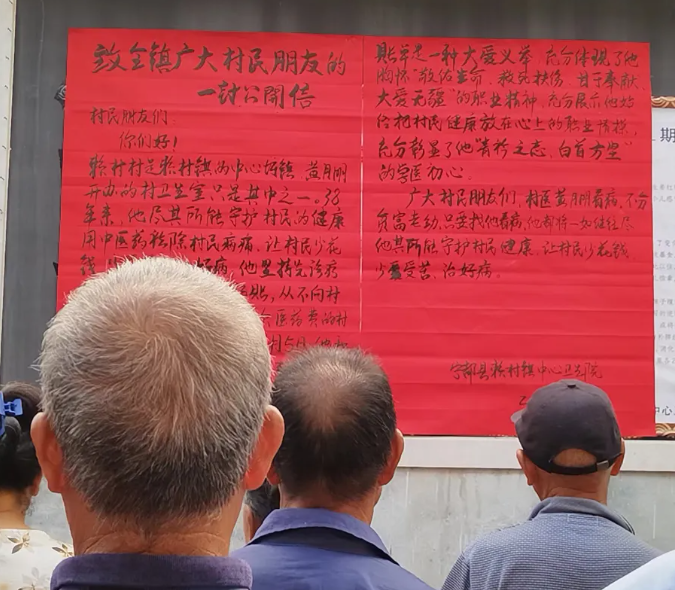 致全镇广大村民朋友的
一封公開信
村民朋友们:
你们好!
赖村村是赖村镇的中心圩镇，黄月朋
开办的村卫生室只是其中之一。38
年来，他尽其所能守护村民的健康
用中医药祛除村民病痛、让村民少花
钱
病，他坚持先诊疗
从不向村
医药费的村
貼单是一种大爱义举，充分体现了他
胸怀"敬佑生命、救死扶伤、甘于奉献、
大爱无疆"的职业精神，充分展示他始
终把村民健康放在心上的职业情操，
充分彰显了他
的学医初心。
广大村民朋友们，村医黄月朋看病，不分
贫富老幼，只要找他看病，他都将一如继往尽
他其所能守护村民健康、让村民少花钱、
少受苦、治好病。
宁都县赖村镇中心卫生院
期